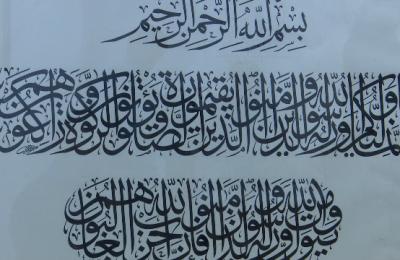 بِسْمِ اللَّهِ الرَّحْمَنِ الرَّحِيمِ
إنما وليكم الله ورسوله والذين آمنوا الذين يقيمون الصلاة ويؤتون الزكاة وهم راكعون
ومن يتول الله ورسوله والذين آمنوا فإن حزب الله هم الغالبون